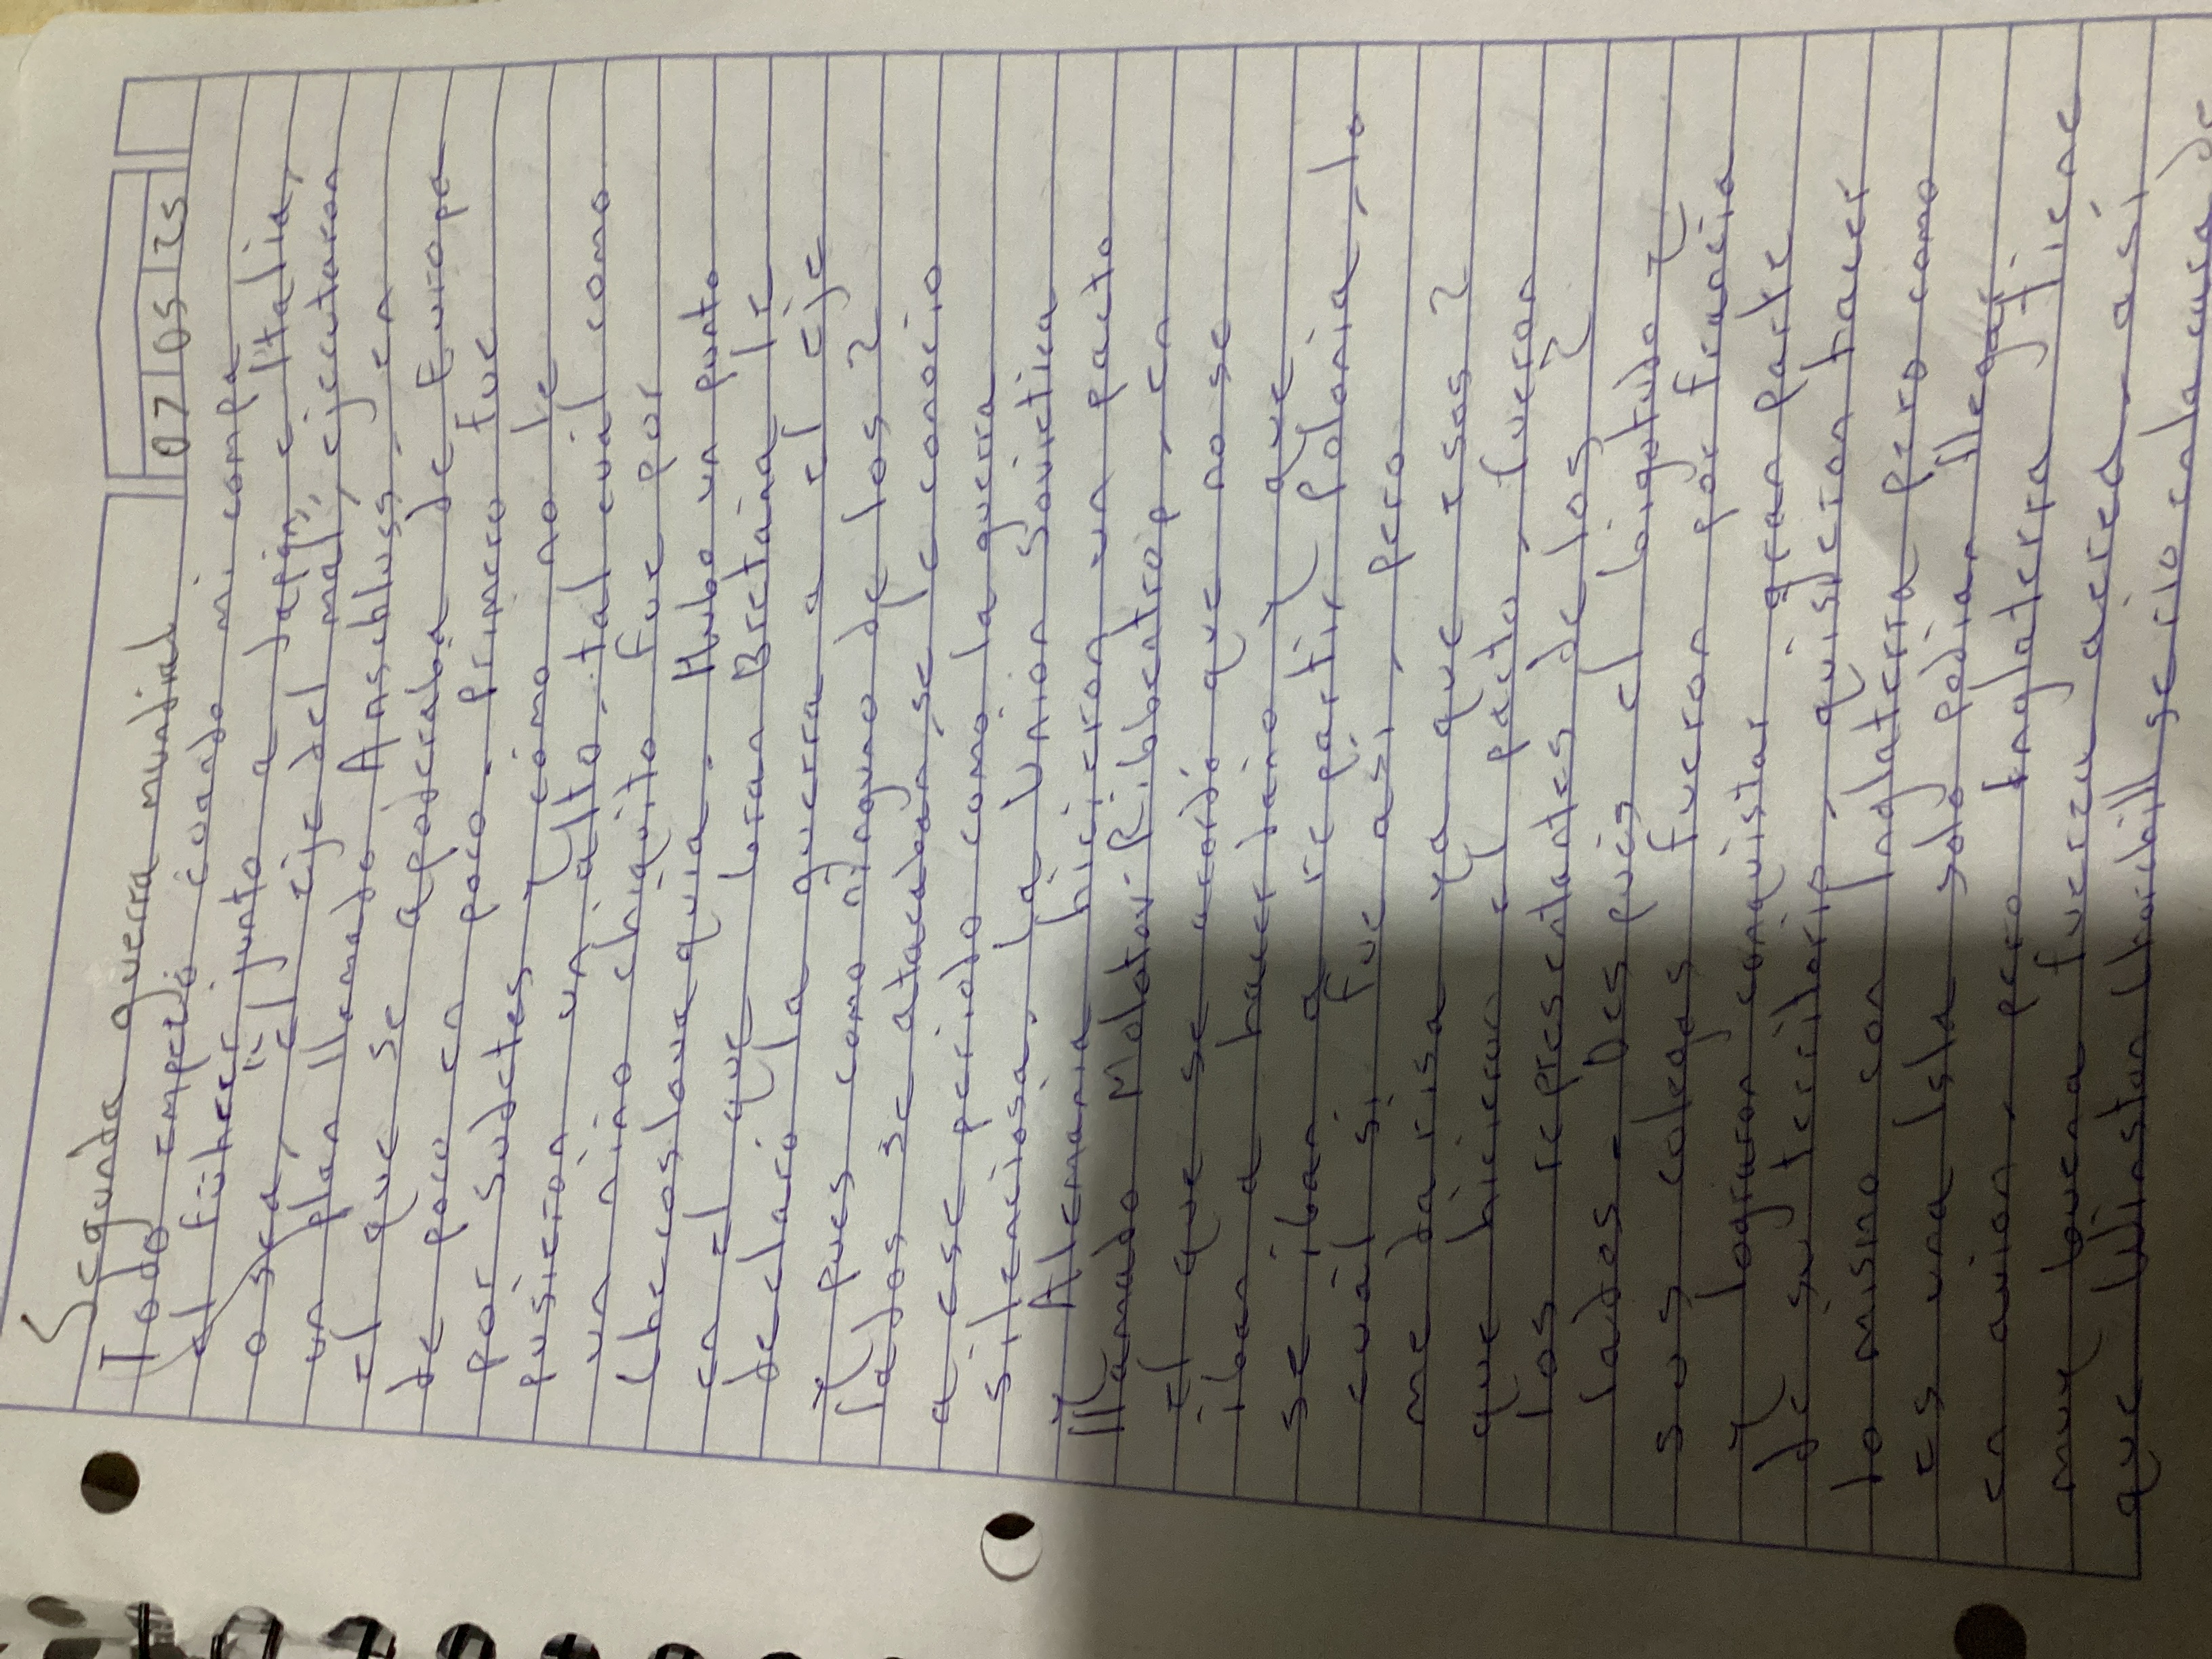 07 05 25
Segunda guerra mundial
Todo empezó cuando mi compa
el führer junto a Japón e Italia,
o sea, "el eje del mal", ejecutaron
un plan llamado Anschluss, en
el que se apoderaba de Europa
de poco en poco. primero fue
por sudetes y como no le
pusieron un alto, tal cual como
un niño chiquito fue por
checoslovaquia. Hubo un punto
en el que Gran Bretaña le
declaro la guerra a el eje
y pues como ninguno de los 2
lados se atacaban, se le conocio
a ese periodo como la guerra
silenciosa. La Union Sovietica
y Alemania hicieron un pacto
llamado Molotov-Ribbentrop, en
el que se acordo que no se
iban a hacer daño y que
se iban a repartir Polonia, lo
cual si fue asi, pero
me da risa ya que esos 2
que hicieron el pacto, fueron
los representantes de los 2
lados. Despues el bigotudo y
sus colegas fueron por francia
y lograron conquistar gran parte
de su territorio, quisieron hacer
lo mismo con Inglaterra pero como
es una Isla solo podian llegar
en avion, pero Inglaterra tiene
muy buena fuerza aerea, asi
que Winston Churchill se rio en la cara de